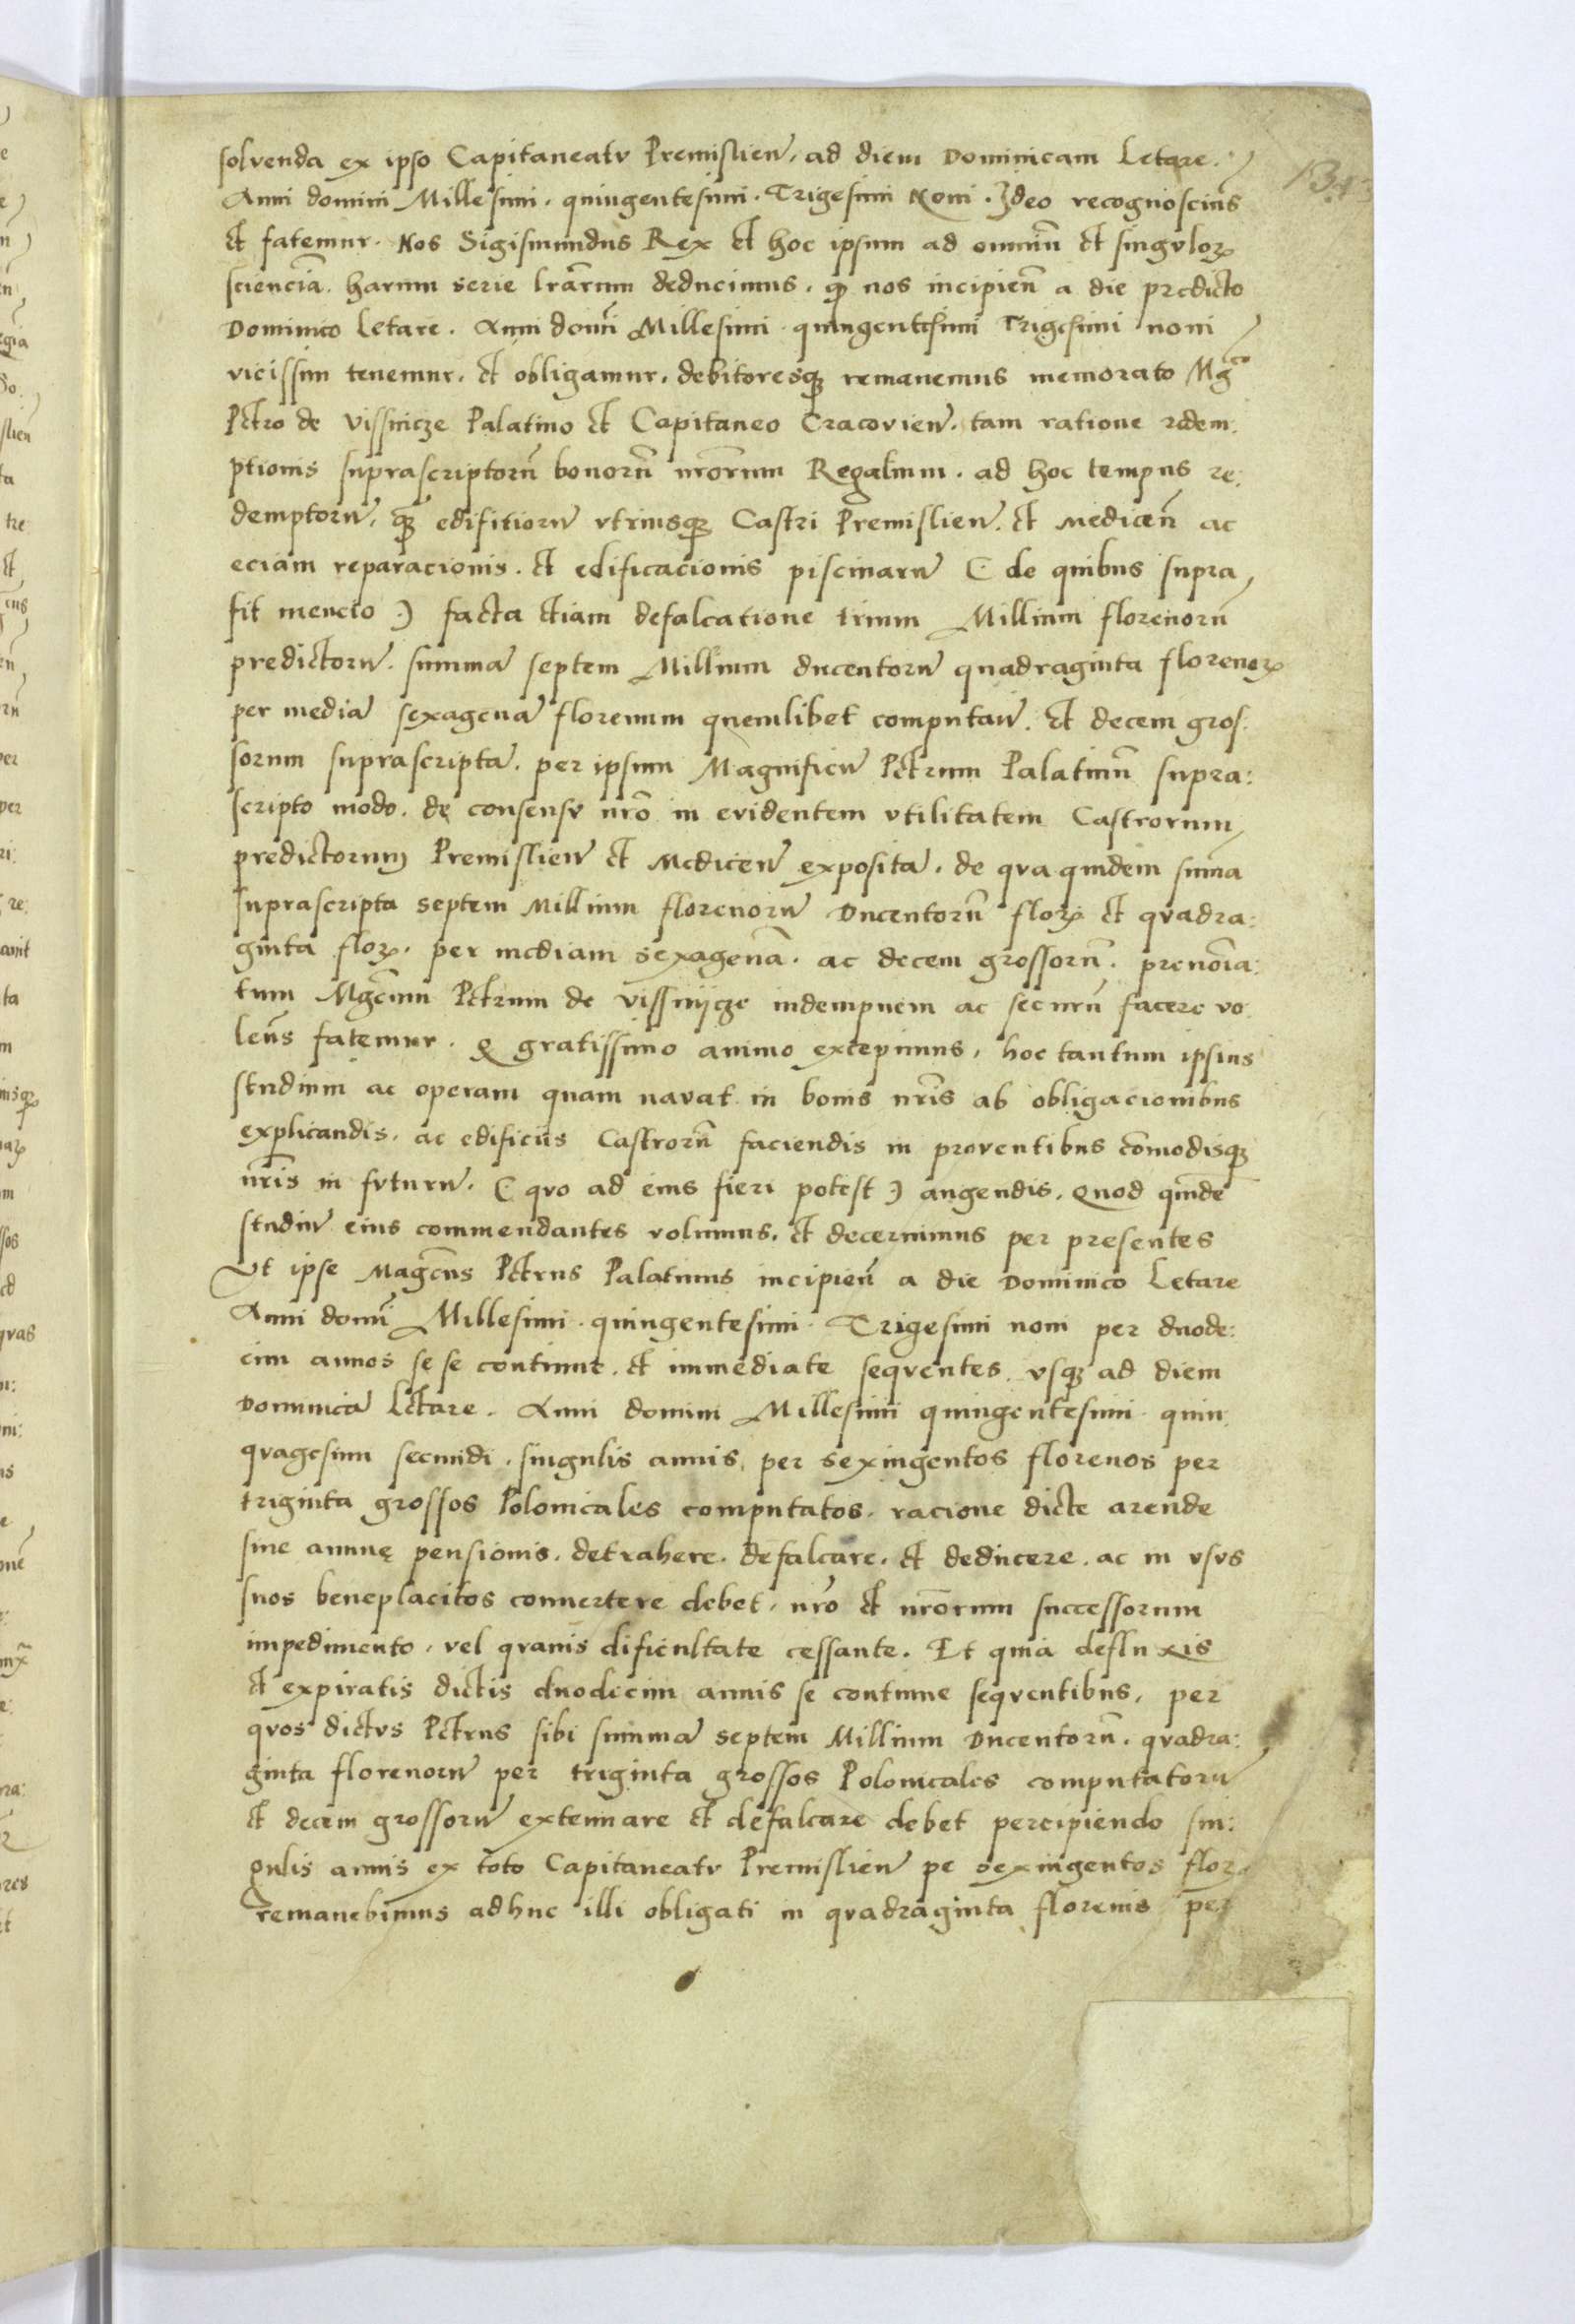 solvenda ex ipso Capitaneatv Premislien̄. ad diem Dominicam Letare.
Anni domini Millesimi. quingentesimi. Trigesimi Noni. Ideo recognoscim̄s
et fatemur. Nos Sigismundus Rex et hoc ipsum ad omniū et singvloꝝ
scienciā. harum serie lrārum deducimus. ꝙ nos incipien̄ a die predicto
Dominico Letare. Anni domī Millesimi quingentesimi Trigesimi noni
vicissim tenemur. et obligamur. debitoresqꝫ remanemus memorato Mgco
Petro de Vissnicze Palatino et Capitaneo Cracovien̄. tam ratione redem:
ptionis suprascriptorū bonorū nrōrum Regalium. ad hoc tempus re:
demptorū. qꝫ edifitiorū vtriusqꝫ Castri Premislien̄. et Medicen̄ ac
eciam reparacionis. et edificacionis piscinarū (: de quibus supra
fit mencio :) facta etiam defalcatione trium Millium florenorū
predictorū. summā septem Millium ducentorū quadraginta florenoꝝ
per mediā sexagenā florenum quemlibet computan̄. et decem gros:
sorum suprascriptā. per ipsum Magnificū Petrum Palatinū supra:
scripto modo. de consensv nrō in evidentem vtilitatem Castrorum
predictorum Premislien̄ et Medicen̄ expositā. de qva quidem sūma
suprascripta septem Millium florenorū Ducentorū floꝝ et qvadra:
ginta floꝝ. per mediam sexagenā. ac decem grossorū. prenoīa:
tum Mgcum Petrum de Vissnijcze indempnem ac securū facere vo:
len̄s fatemur. ꝙ gratissimo animo excepimus, hoc tantum ipsius
studium ac operam quam navat in bonis nrīs ab obligacionibus
explicandis. ac edificiis Castrorū faciendis in proventibus cōmodisqꝫ
nrīs in fvturū. (: qvo ad eius fieri potest :) augendis. Quod quidē
studiū eius commendantes volumus. et decernimus per presentes
Vt ipse Magcus Petrus Palatinus incipien̄ a die Dominico Letare
Anni domī Millesimi. quingentesimi. Trigesimi noni per duode:
cim annos se se continue. et immediate seqventes. vsqꝫ ad diem
Dominicā Letare. Anni domini Millesimi quingentesimi quin:
qvagesimi secundi. singulis annis, per sexingentos florenos per
triginta grossos Polonicales computatos. racione dicte arende
sive annuę pensionis. detrahere. defalcare. et deducere. ac in vsvs
suos beneplacitos convertere debet. nrō et nrōrum successorum
impedimento, vel qvavis dificultate cessante. Et quia defluxis
et expiratis dictis duodecim annis se continue seqventibus, per
qvos dictvs Petrus sibi summā septem Millium Ducentorū. qvadra:
ginta florenorū per triginta grossos Polonicales computatorū
et decem grossorū extenuare et defalcare debet percipiendo sin:
gulis annis ex toto Capitaneatv Premislien̄ pe sexingentos floꝝ
remanebimus adhuc illi obligati in qvadraginta florenis per